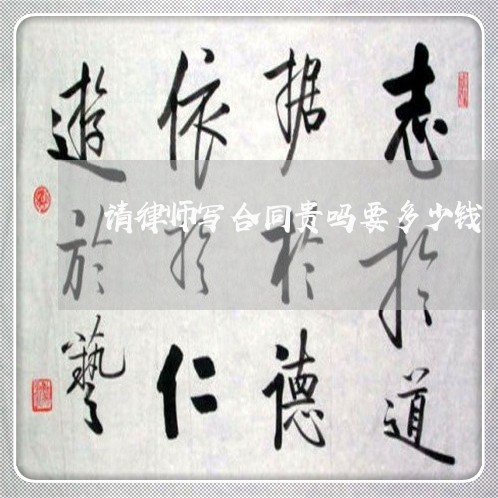 志於道
据於德
依於仁
遊於藝
请律师写合同贵吗要多少钱